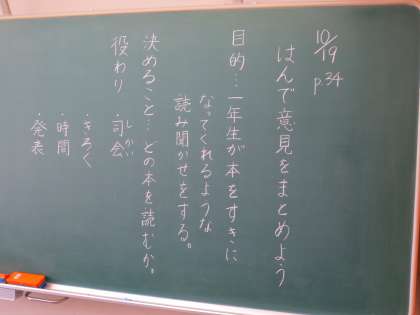 10/19
p.34
はんで意見をまとめよう
目的…一年生が本をすきに
なってくれるような
読み聞かせをする。
決めること…どの本を読むか。
役わり
・司会
しかい
・きろく
・時間
・発表